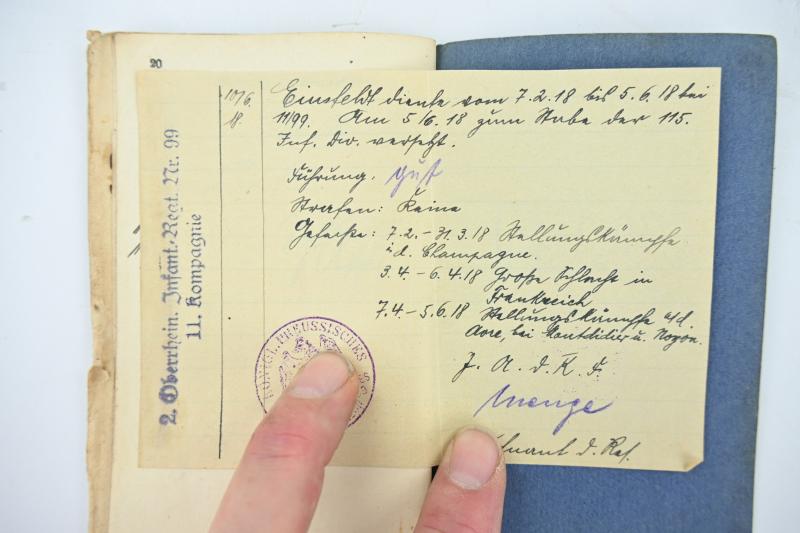 20
2. Oberrhein. Infant.-Regt. Nr. 99
11. Kompagnie
10/6.
18.
Einsfeldt diente vom 7.2.18 bis 5.6.18 bei
11/99. Am 5/6.18 zum Stabe der 115.
Inf. Div. versetzt.
Führung. gut
Strafen: Keine
Gefechte: 7.2.-31.3.18 Stellungskämpfe
i.d. Champagne.
3.4.-6.4.18 Große Schlacht in
Frankreich
7.4.-5.6.18 Stellungskämpfe a/d.
Avre, bei Montdidier u. Noyon.
J. A. d. K. F.
Menge
d. Res.
KÖNIGL. PREUSSISCHES